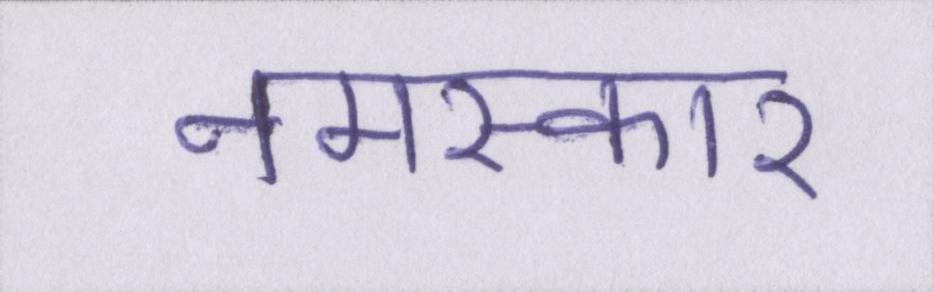 नमस्कार